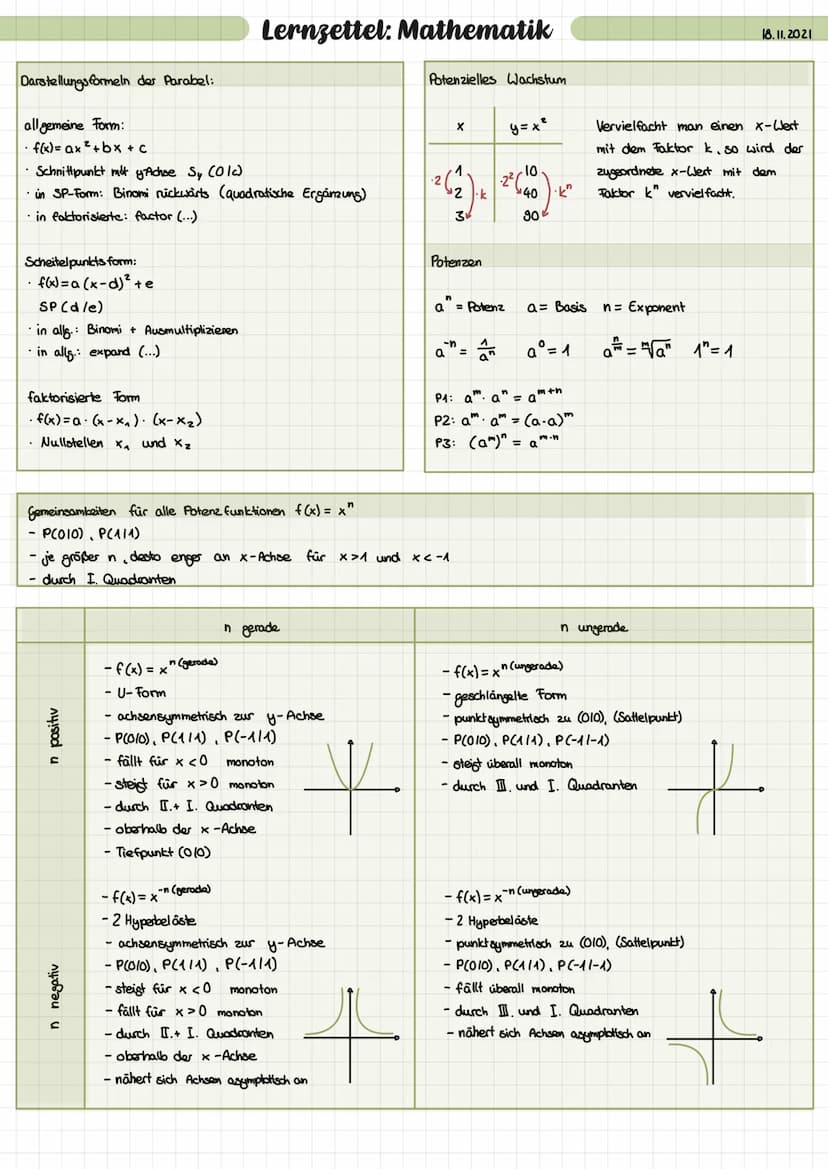 Lernzettel: Mathematik
18.11.2021
Darstellungsformeln der Parabel:
allgemeine Form:
· f(x) = ax² + bx + c
· Schnittpunkt mit y-Achse Sy (0/c)
· in SP-Form: Binomi rückwärts (quadratische Ergänzung)
· in faktorisierte: factor (...)
Scheitelpunktsform:
· f(x) = a (x-d)² + e
SP (d/e)
· in allg.: Binomi + Ausmultiplizieren
· in allg.: expand (...)
faktorisierte Form
· f(x) = a · (x - x₁) · (x - x₂)
· Nullstellen x₁ und x₂
Potenzielles Wachstum
x y = x²
·2 1 ·k ·2² 10 ·kⁿ
2 40
3 90
Vervielfacht man einen x-Wert
mit dem Faktor k, so wird der
zugeordnete x-Wert mit dem
Faktor kⁿ vervielfacht.
Potenzen
aⁿ = Potenz a = Basis n = Exponent
a⁻ⁿ = 1/aⁿ a⁰ = 1 a^(n/m) = ᵐ√aⁿ 1ⁿ = 1
P1: aᵐ · aⁿ = aᵐ⁺ⁿ
P2: aᵐ · aᵐ = (a·a)ᵐ
P3: (aᵐ)ⁿ = aᵐ·ⁿ
Gemeinsamkeiten für alle Potenzfunktionen f(x) = xⁿ
- P(0/0), P(1/1)
- je größer n, desto enger an x-Achse für x>1 und x<-1
- durch I. Quadranten
n gerade
n ungerade
n positiv
- f(x) = x^n (gerade)
- U-Form
- achsensymmetrisch zur y-Achse
- P(0/0), P(1/1), P(-1/1)
- fällt für x<0 monoton
- steigt für x>0 monoton
- durch II. + I. Quadranten
- oberhalb der x-Achse
- Tiefpunkt (0/0)
- f(x) = x^n (ungerade)
- geschlängelte Form
- punktsymmetrisch zu (0/0), (Sattelpunkt)
- P(0/0), P(1/1), P(-1/-1)
- steigt überall monoton
- durch III. und I. Quadranten
n negativ
- f(x) = x^-n (gerade)
- 2 Hyperbeläste
- achsensymmetrisch zur y-Achse
- P(0/0), P(1/1), P(-1/1)
- steigt für x<0 monoton
- fällt für x>0 monoton
- durch II. + I. Quadranten
- oberhalb der x-Achse
- nähert sich Achsen asymptotisch an
- f(x) = x^-n (ungerade)
- 2 Hyperbeläste
- punktsymmetrisch zu (0/0), (Sattelpunkt)
- P(0/0), P(1/1), P(-1/-1)
- fällt überall monoton
- durch III. und I. Quadranten
- nähert sich Achsen asymptotisch an